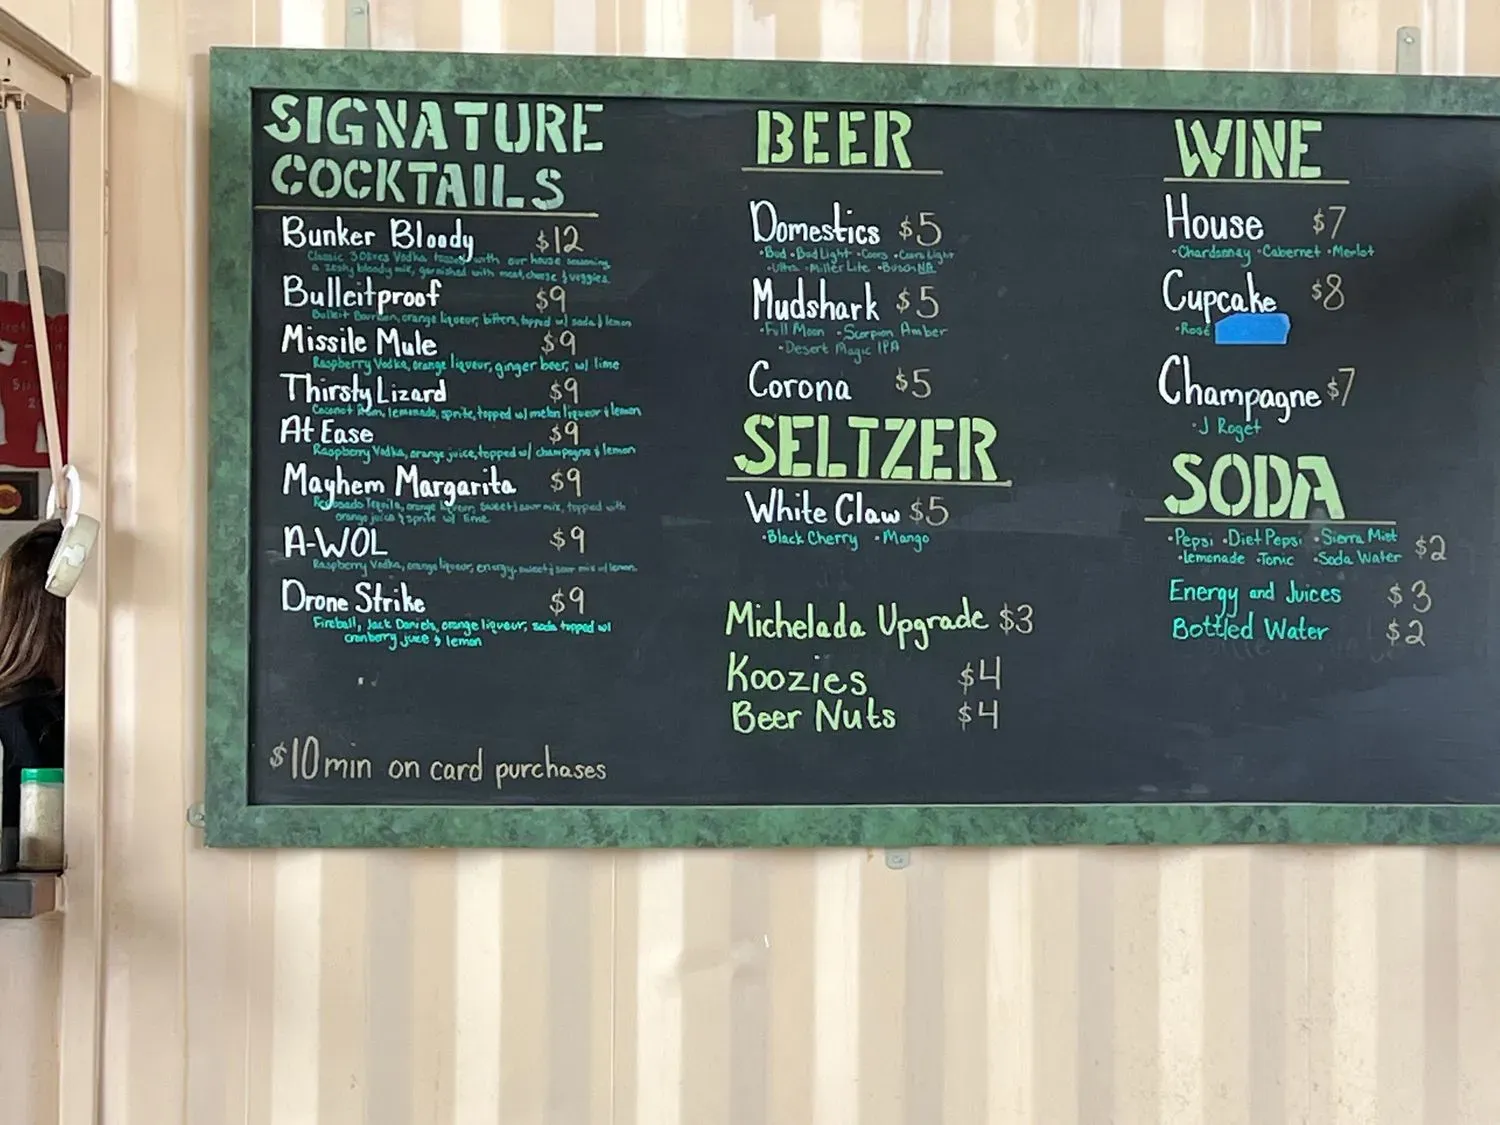 SIGNATURE
COCKTAILS
Bunker Bloody $12
Classic 3 Olives Vodka tossed with our house seasoning
a zesty bloody mix, garnished with meat, cheese & veggies.
Bulleitproof $9
Bulleit Bourbon, orange liqueur, bitters, topped w/ soda & lemon
Missile Mule $9
Raspberry Vodka, orange liqueur, ginger beer, w/ lime
Thirsty Lizard $9
Coconut Rum, lemonade, sprite, topped w/ melon liqueur & lemon
At Ease $9
Raspberry Vodka, orange juice, topped w/ champagne & lemon
Mayhem Margarita $9
Reposado Tequila, orange liqueur, sweet & sour mix, topped with
orange juice & sprite w/ lime
A-WOL $9
Raspberry Vodka, orange liqueur, energy, sweet & sour mix w/ lemon.
Drone Strike $9
Fireball, Jack Daniels, orange liqueur, soda topped w/
cranberry juice & lemon
$10 min on card purchases
BEER
Domestics $5
•Bud •Bud Light •Coors •Coors Light
•Ultra •Miller Lite •Busch NA
Mudshark $5
•Full Moon •Scorpion Amber
•Desert Magic IPA
Corona $5
SELTZER
White Claw $5
•Black Cherry •Mango
Michelada Upgrade $3
Koozies $4
Beer Nuts $4
WINE
House $7
•Chardonnay •Cabernet •Merlot
Cupcake $8
•Rosé
Champagne $7
•J Roget
SODA
•Pepsi •Diet Pepsi •Sierra Mist $2
•Lemonade •Tonic •Soda Water
Energy and Juices $3
Bottled Water $2